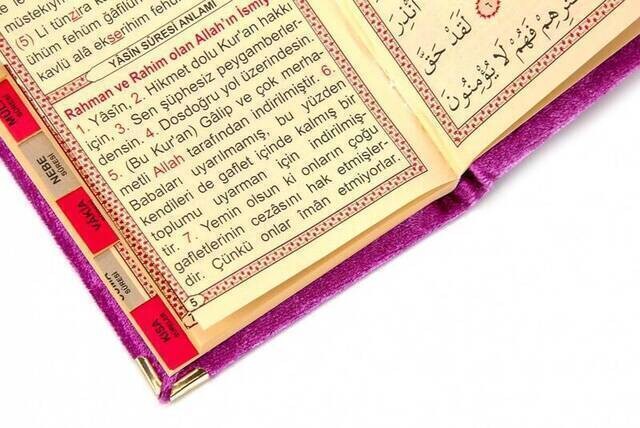 (5) Li tünzira
ühüm fehüm ğâfilûn
kavlü alâ ekserihim fehüm
YÂSİN SÛRESİ ANLAMI
Rahman ve Rahim olan Allah'ın İsmiy
1. Yâsîn, 2. Hikmet dolu Kur'an hakkı
için, 3. Sen şüphesiz peygamberler-
densin. 4. Dosdoğru yol üzerindesin.
5. (Bu Kur'an) Gâlip ve çok merha-
metli Allah tarafından indirilmiştir. 6.
Babaları uyarılmamış, bu yüzden
kendileri de gaflet içinde kalmış bir
toplumu uyarman için indirilmiş-
tir. 7. Yemin olsun ki onların çoğu
gafletlerinin cezâsını hak etmişler-
dir. Çünkü onlar îmân etmiyorlar.
5
MÜLK
SÛRESİ
NEBE
SÛRESİ
VAKIA
SÛRESİ
SÛRESİ
KISA
SÛRELER
لَقَدْ حَقَّ
فَهُمْ لَا يُؤْمِنُونَ